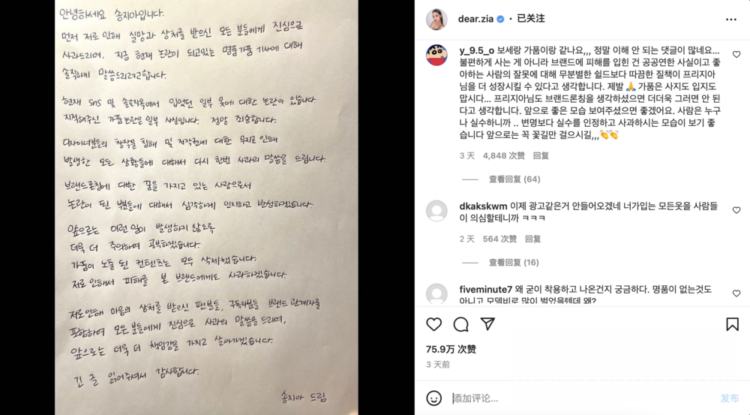 안녕하세요 송지아입니다.
먼저 저로 인해 실망과 상처를 받으신 모든 분들에게 진심으로
사과드리며, 지금 현재 논란이 되고있는 명품가품 기사에 대해
솔직하게 말씀드리려고합니다.
현재 SNS 및 솔로지옥에서 입었던 일부 옷에 대한 논란이 있습니다
지적해주신 가품 논란은 일부 사실입니다. 정말 죄송합니다.
디자이너분들의 창작물 침해 및 저작권에 대한 무지로 인해
발생한 모든 상황들에 대해서 다시 한번 사과의 말씀을 드립니다.
브랜드론칭에 대한 꿈을 가지고 있는 사람으로서
논란이 된 부분들에 대해서 심각하게 인지하고 반성하겠습니다.
앞으로는 이런 일이 발생하지 않도록
더욱 더 주의하며 공부하겠습니다.
가품이 노출 된 컨텐츠는 모두 삭제했습니다.
저로 인해서 피해를 본 브랜드에게도 사과하겠습니다.
저로 인해 마음의 상처를 받으신 팬분들, 구독자분들 브랜드 관계자를
포함하여 모든 분들에게 진심으로 사과의 말씀을 드리며,
앞으로는 더욱 더 책임감을 가지고 살아가겠습니다.
긴 글 읽어주셔서 감사합니다.
송지아 드림
dear.zia • 已关注
y_9.5_o 보세랑 가품이랑 같나요,,, 정말 이해 안 되는 댓글이 많네요...
불편하게 사는 게 아니라 브랜드에 피해를 입힌 건 공공연한 사실이고 좋
아하는 사람의 잘못에 대해 무분별한 쉴드보다 따끔한 질책이 프리지아
님을 더 성장시킬 수 있다고 생각합니다. 제발 🙏 가품은 사지도 입지도
맙시다... 프리지아님도 브랜드론칭을 생각하셨으면 더더욱 그러면 안 된
다고 생각합니다. 앞으로 좋은 모습 보여주셨으면 좋겠어요. 사람은 누구
나 실수하니까 .. 변명보다 실수를 인정하고 사과하시는 모습이 보기 좋
습니다 앞으로는 꼭 꽃길만 걸으시길,,, 👏👏
3 天 4,848 次赞 回复
查看回复 (64)
dkakskwm 이제 광고같은거 안들어오겠네 너가입는 모든옷을 사람들
이 의심할테니까 ㅋㅋㅋ
2 天 564 次赞 回复
查看回复 (16)
fiveminute7 왜 굳이 착용하고 나온건지 궁금하다. 명품이 없는것도
아니고 모델비로 많이 벌었을텐데 왜?
75.9万 次赞
3 天前
添加评论...
发布